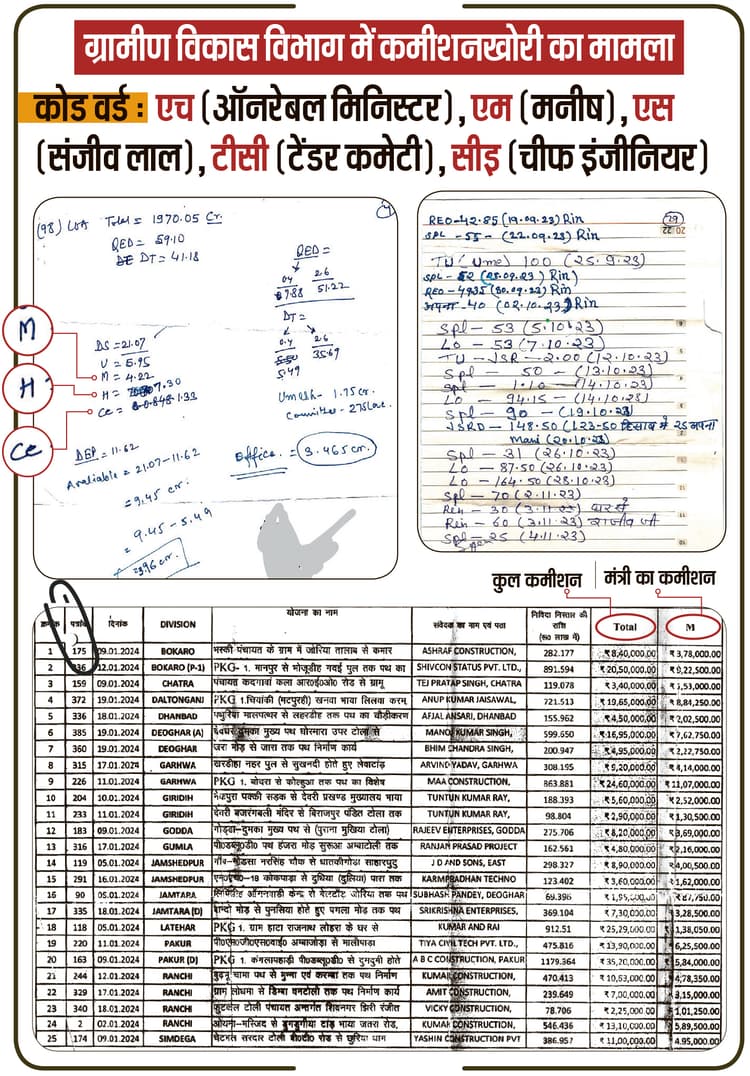 ग्रामीण विकास विभाग में कमीशनखोरी का मामला
कोड वर्ड : एच (ऑनरेबल मिनिस्टर), एम (मनीष), एस
(संजीव लाल), टीसी (टेंडर कमेटी), सीइ (चीफ इंजीनियर)
(98) LOA Total = 1970.05 Cr.
QED = 59.10
DT = 41.18
QED =
0.4 2.6
7.88 51.22
DT =
0.4 2.6
5.49 35.69
M
H
Ce
DS = 21.07
V = 5.95
M = 4.22
H = 7.30
Ce = 1.33
Umesh - 1.75 cr.
Committee - 275 Lac.
DEP = 11.62
Available = 21.07 - 11.62
= 9.45 cr.
= 9.45 - 5.49
= 3.96 cr.
Office = 3.465 cr.
REO - 42.85 (19.09.23) Rin
SPL - 55 - (22.09.23) Rin
TU (Ume) 100 (25.9.23)
SPL - 52 (25.09.23) Rin)
REO - 4935 (30.09.23) Rin
अपना - 40 (02.10.23) Rin
Spl - 53 (5.10.23)
Lo - 53 (7.10.23)
TU - JSR - 2.00 (12.10.23)
Spl - 50 - (13.10.23)
Spl - 1.10 - (14.10.23)
Lo - 94.15 - (14.10.23)
Spl - 90 - (19.10.23)
JSRD - 148.50 (123.50 हिसाब में 25 अपना
Mani (20.10.23)
Spl - 31 (26.10.23)
Lo - 87.50 (26.10.23)
Lo - 164.50 (28.10.23)
Spl - 70 (2.11.23)
Ren - 30 (3.11.23)
Rein - 60 (3.11.23) राजीव जी
Spl - 25 (4.11.23)
कुल कमीशन | मंत्री का कमीशन
पत्रांक दिनांक DIVISION योजना का नाम संवेदक का नाम एवं पता निविदा निस्तार की राशि (रू0 लाख में) Total M
1 175 09.01.2024 BOKARO भस्की पंचायत के ग्राम में जोरिया तालाब से कमार ASHRAF CONSTRUCTION, 282.177 ₹8,40,000.00 ₹3,78,000.00
2 12.01.2024 BOKARO (P-1) PKG- 1. मानपुर से भोजूडीह गवई पुल तक पथ का SHIVCON STATUS PVT. LTD., 891.594 ₹20,50,000.00 ₹9,22,500.00
3 159 09.01.2024 CHATRA पंचायत कदगावां कला आर०ई०ओ० रोड से ग्राम TEJ PRATAP SINGH, CHATRA 119.078 ₹3,40,000.00 ₹1,53,000.00
4 372 19.01.2024 DALTONGANJ PKG 1. चियांकी (मटपुरही) खनवा भाया लिलवा करम ANUP KUMAR JAISAWAL, 721.513 ₹19,65,000.00 ₹8,84,250.00
5 336 18.01.2024 DHANBAD पथुरिया मालपत्थर से लहरडीह तक पथ का चौड़ीकरण AFJAL ANSARI, DHANBAD 155.962 ₹4,50,000.00 ₹2,02,500.00
6 385 19.01.2024 DEOGHAR (A) देवघर दुमका मुख्य पथ घोरमारा उपर टोला से MANOJ KUMAR SINGH, 599.650 ₹16,95,000.00 ₹7,62,750.00
7 360 19.01.2024 DEOGHAR जरा मोड़ से जारा तक पथ निर्माण कार्य BHIM CHANDRA SINGH, 200.947 ₹4,95,000.00 ₹2,22,750.00
8 315 17.01.2024 GARHWA खरडीहा नहर पुल से सुखनदी होते हुए लेवाटांड़ ARVIND YADAV, GARHWA 308.195 ₹9,20,000.00 ₹4,14,000.00
9 226 11.01.2024 GARHWA PKG 1. बोचरा से कोल्हुआ तक पथ का विशेष MAA CONSTRUCTION, 863.881 ₹24,60,000.00 ₹11,07,000.00
10 204 10.01.2024 GIRIDIH पक्की सड़क से देवरी प्रखण्ड मुख्यालय भाया TUNTUN KUMAR RAY, 188.393 ₹5,60,000.00 ₹2,52,000.00
11 233 11.01.2024 GIRIDIH देवरी बजरंगबली मंदिर से बिराजपुर पंडित टोला तक TUNTUN KUMAR RAY, 98.804 ₹2,90,000.00 ₹1,30,500.00
12 183 09.01.2024 GODDA गोड्डा-दुमका मुख्य पथ से (पुराना मुखिया टोला) RAJEEV ENTERPRISES, GODDA 275.706 ₹8,20,000.00 ₹3,69,000.00
13 316 17.01.2024 GUMLA पी०डब्लू०डी० पथ हंजरा मोड़ सुरूआ अम्बाटोली तक RANJAN PRASAD PROJECT 162.561 ₹4,80,000.00 ₹2,16,000.00
14 119 05.01.2024 JAMSHEDPUR नरसिंह चौक से घातकीगोड़ा साहारपुदु J D AND SONS, EAST 298.327 ₹8,90,000.00 ₹4,00,500.00
15 291 16.01.2024 JAMSHEDPUR एन०एच०-18 कोकपाड़ा से दुधिया (दुलिया) पारा तक KARMPRADHAN TECHNO 123.402 ₹3,60,000.00 ₹1,62,000.00
16 90 05.01.2024 JAMTARA आंगनवाड़ी केन्द्र से बेलटाँट जोरिया तक पथ SUBHASH PANDEY, DEOGHAR 69.396 ₹1,95,000.00 ₹87,750.00
17 335 18.01.2024 JAMTARA (D) बान्दो मोड़ से पुनसिया होते हुए पगला मोड़ तक पथ SRIKRISHNA ENTERPRISES, 369.104 ₹7,30,000.00 ₹3,28,500.00
18 118 05.01.2024 LATEHAR PKG 1. ग्राम हाटा राजनाथ लोहरा के घर से KUMAR AND RAI 912.51 ₹25,29,000.00 1,38,050.00
19 220 11.01.2024 PAKUR पी०एम०जी०एस०वाई० अम्बाजोड़ा से मालीपाड़ा TIYA CIVIL TECH PVT. LTD., 475.816 ₹13,90,000.00 6,25,500.00
20 163 09.01.2024 PAKUR (D) PKG 1. कंगलापहाड़ी पी०डब्लू०डी० से दुगदुमी होते A B C CONSTRUCTION, PAKUR 1179.364 ₹35,20,000.00 5,84,000.00
21 244 12.01.2024 RANCHI बुढ़नू चामा पथ से मुन्ना एवं करम्बा तक पथ निर्माण KUMAR CONSTRUCTION, 470.413 ₹10,63,000.00 4,78,350.00
22 329 17.01.2024 RANCHI ग्राम लोधमा से डिम्बा बनटोली तक पथ निर्माण कार्य AMIT CONSTRUCTION, 239.649 ₹7,00,000.00 3,15,000.00
23 340 18.01.2024 RANCHI फुटकल टोली पंचायत अन्तर्गत शिवनगर झिरी रंजीत VICKY CONSTRUCTION, 78.706 ₹2,25,000.00 1,01,250.00
24 2 02.01.2024 RANCHI ओयना-मस्जिद से डुगडुगीया टांड़ भाया जतरा रोड, KUMAR CONSTRUCTION, 546.436 ₹13,10,000.00 5,89,500.00
25 174 09.01.2024 SIMDEGA चेटगत सरदार टोली पी०टी० रोड से छुरिया धाम YASHIN CONSTRUCTION PVT 386.957 ₹11,00,000.00 4,95,000.00